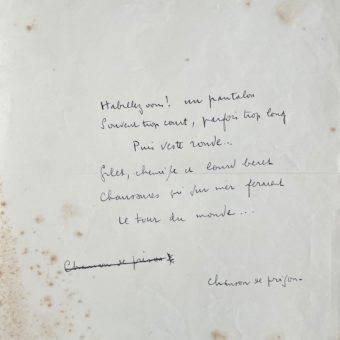 Habillez vous! un pantalon
Souvent trop court, parfois trop long
Puis veste ronde..
Gilet, chemise et lourd beret
Chaussures qui sur mer feraient
Le tour du monde...
Chanson de prison
Chanson de prison.